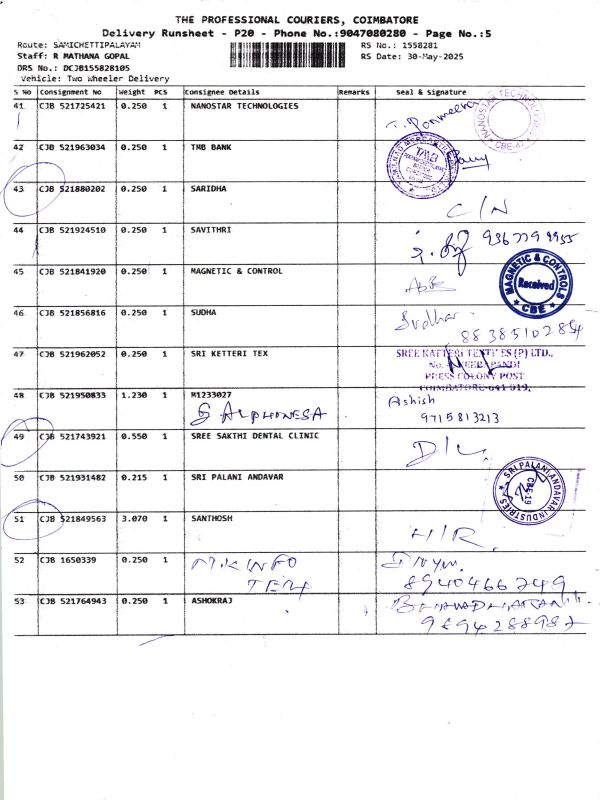 THE PROFESSIONAL COURIERS, COIMBATORE
Delivery Runsheet - P20 - Phone No.:9047080280 - Page No.:5
Route: SAMICHETTIPALAYAM RS No.: 1558281
Staff: R MATHANA GOPAL RS Date: 30-May-2025
DRS No.: DCJB155828105
Vehicle: Two Wheeler Delivery
S No Consignment No Weight PCS Consignee Details Remarks Seal & Signature
41 CJB 521725421 0.250 1 NANOSTAR TECHNOLOGIES
42 CJB 521963034 0.250 1 TMB BANK
TMB
43 CJB 521880202 0.250 1 SARIDHA C/N
44 CJB 521924510 0.250 1 SAVITHRI
45 CJB 521841920 0.250 1 MAGNETIC & CONTROL
MAGNETIC & CONTROLS Received CBE
46 CJB 521856816 0.250 1 SUDHA Sudhar
47 CJB 521962052 0.250 1 SRI KETTERI TEX SREE KATTERI TEXTILES (P) LTD.,
PRESS COLONY POST
COIMBATORE-641 019.
48 CJB 521950833 1.230 1 M1233027 Ashish
S ALPHONESA 9715813213
49 CJB 521743921 0.550 1 SREE SAKTHI DENTAL CLINIC D/L
50 CJB 521931482 0.215 1 SRI PALANI ANDAVAR
SRI PALANI ANDAVAR INDUSTRIES CBE-19
51 CJB 521849563 3.070 1 SANTHOSH H/R
52 CJB 1650339 0.250 1 M.K INFO
TEX 8940466249
53 CJB 521764943 0.250 1 ASHOKRAJ